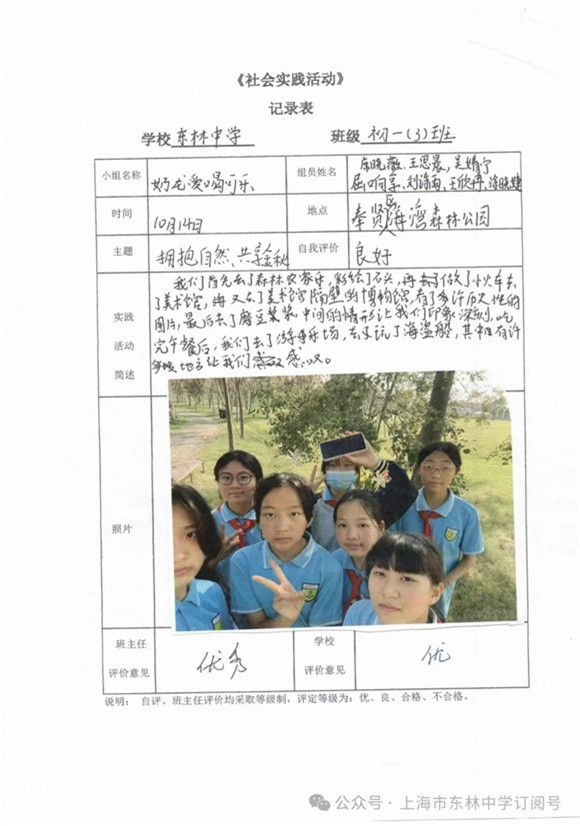 《社会实践活动》
记录表
学校 东林中学 班级 初一(3)班
小组名称 奶龙爱喝可乐 组员姓名 王思晨、吴婧宁
时间 10月14日 地点 奉贤海湾森林公园
主题 拥抱自然、共享金秋 自我评价 良好
实践
活动
简述
我们首先去了森林农家乐，彩绘了石头，再 做了小火车去
了美术馆， 又去了美术馆隔壁的博物馆，看了多许历史性的
图片，最后去了磨豆浆 中间的情形让我们印象深刻，吃
完午餐后，我们去了游乐场，去 玩了海盗船，其中有许
多 地方让我们感叹 。
照片
班主任
评价意见
优秀
学校
评价意见
优
说明： 自评、班主任评价均采取等级制，评定等级为：优、良、合格、不合格。
公众号 · 上海市东林中学订阅号